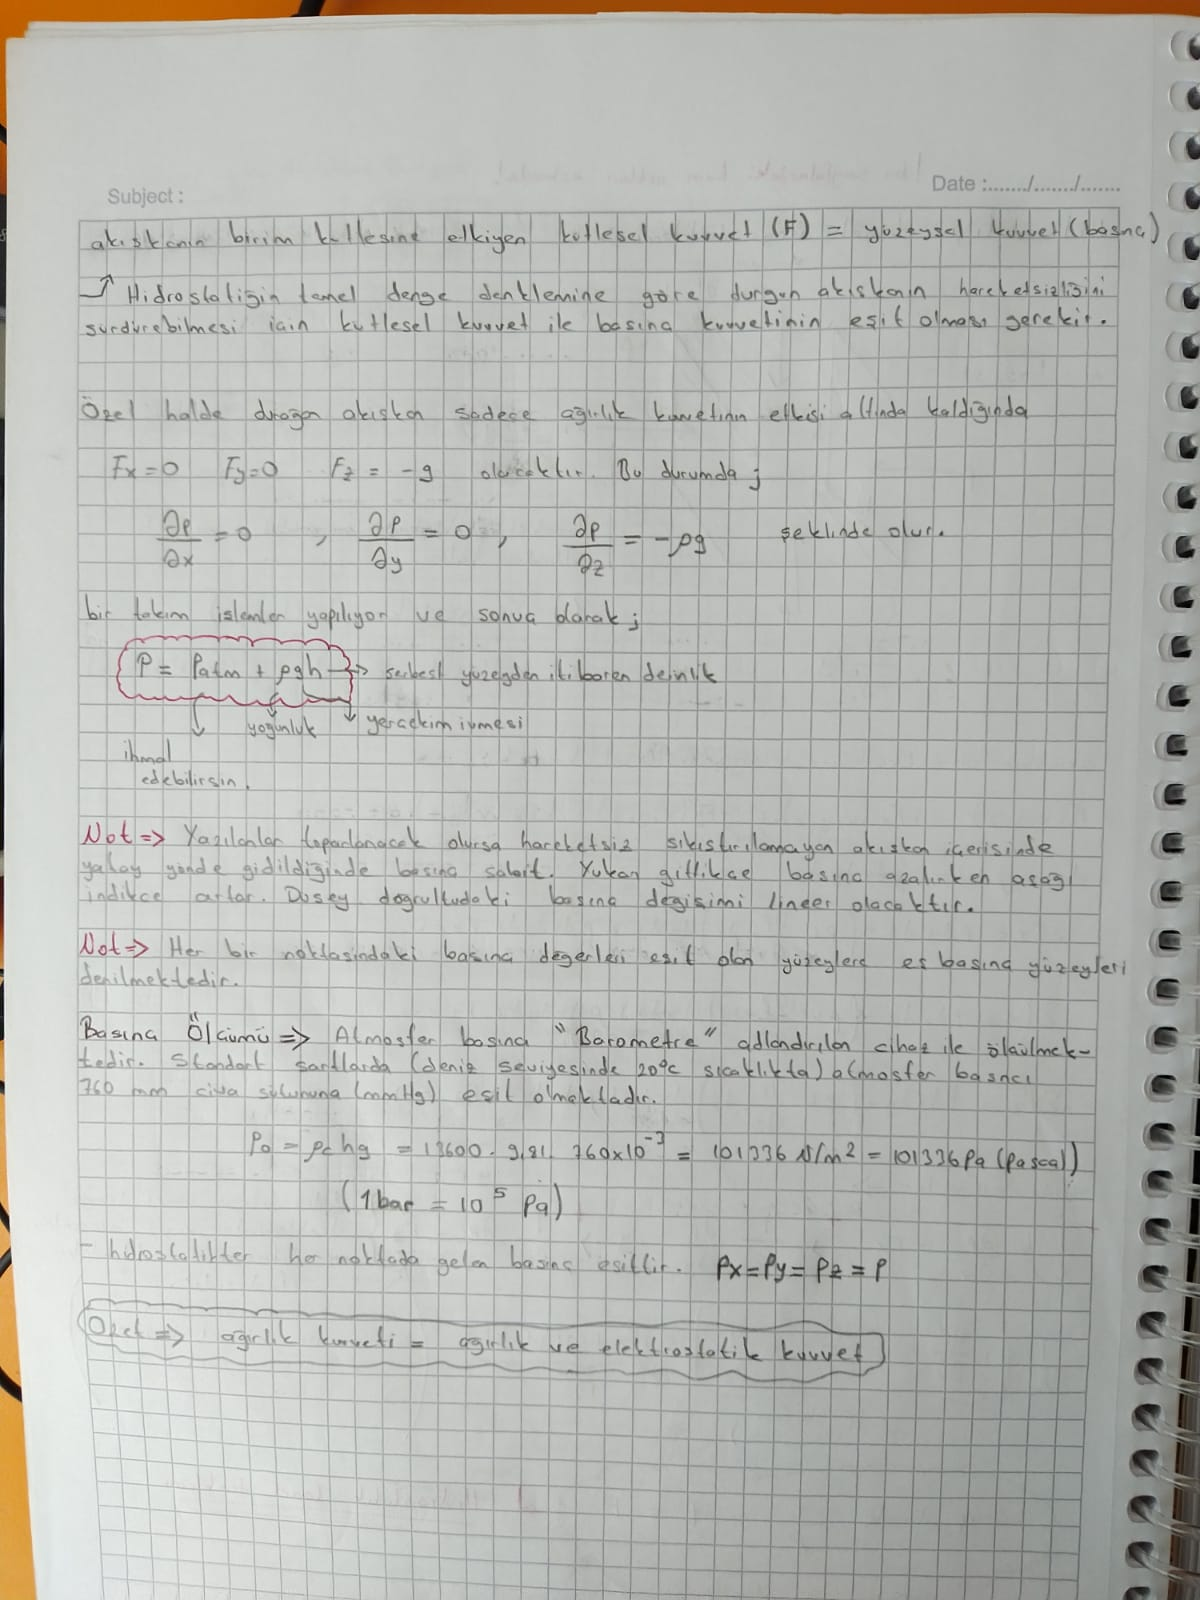 Subject :
Date :......./......./.......
akışkanın birim kütlesine etkiyen kütlesel kuvvet (F) = yüzeysel kuvvet (basınç)
→ Hidrostatiğin temel denge denklemine göre durgun akışkanın hareketsizliğini
sürdürebilmesi için kütlesel kuvvet ile basınç kuvvetinin eşit olması gerekir.
Özel halde durağan akışkan sadece ağırlık kuvvetinin etkisi altında kaldığında
Fx=0 Fy=0 Fz = -g olacaktır. Bu durumda ;
∂p/∂x = 0 , ∂p/∂y = 0 , ∂p/∂z = -ρg şeklinde olur.
bir takım işlemler yapılıyor ve sonuç olarak ;
P = Patm + ρgh → serbest yüzeyden itibaren derinlik
yoğunluk yerçekim ivmesi
ihmal
edebilirsin.
Not => Yazılanlar toparlanacak olursa hareketsiz sıkıştırılamayan akışkan içerisinde
yatay yönde gidildiğinde basınç sabit. Yukarı gittikçe basınç azalırken aşağı
indikçe artar. Düşey doğrultudaki basınç değişimi lineer olacaktır.
Not => Her bir noktasındaki basınç değerleri eşit olan yüzeylere eş basınç yüzeyleri
denilmektedir.
Basınç Ölçümü => Atmosfer basıncı "Barometre" adlandırılan cihaz ile ölçülmek-
tedir. Standart şartlarda (deniz seviyesinde 20°c sıcaklıkta) atmosfer basıncı
760 mm civa sütununa (mmHg) eşit olmaktadır.
Po = ρc hg = 13600 . 9,81 . 760x10⁻³ = 101336 N/m² = 101336 Pa (pascal)
(1 bar = 10⁵ Pa)
- hidrostatikter her noktada gelen basınç eşittir. Px = Py = Pz = P
Özet => ağırlık kuvveti = ağırlık ve elektrostatik kuvvet